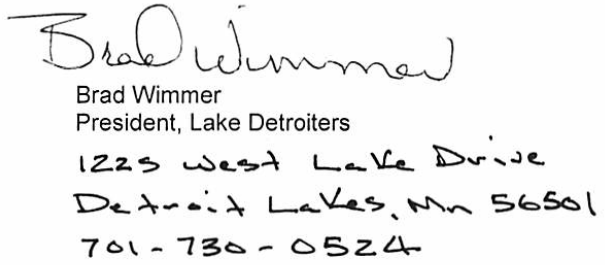 Brad Wimmer
Brad Wimmer
President, Lake Detroiters
1225 West Lake Drive
Detroit Lakes, Mn 56501
701-730-0524